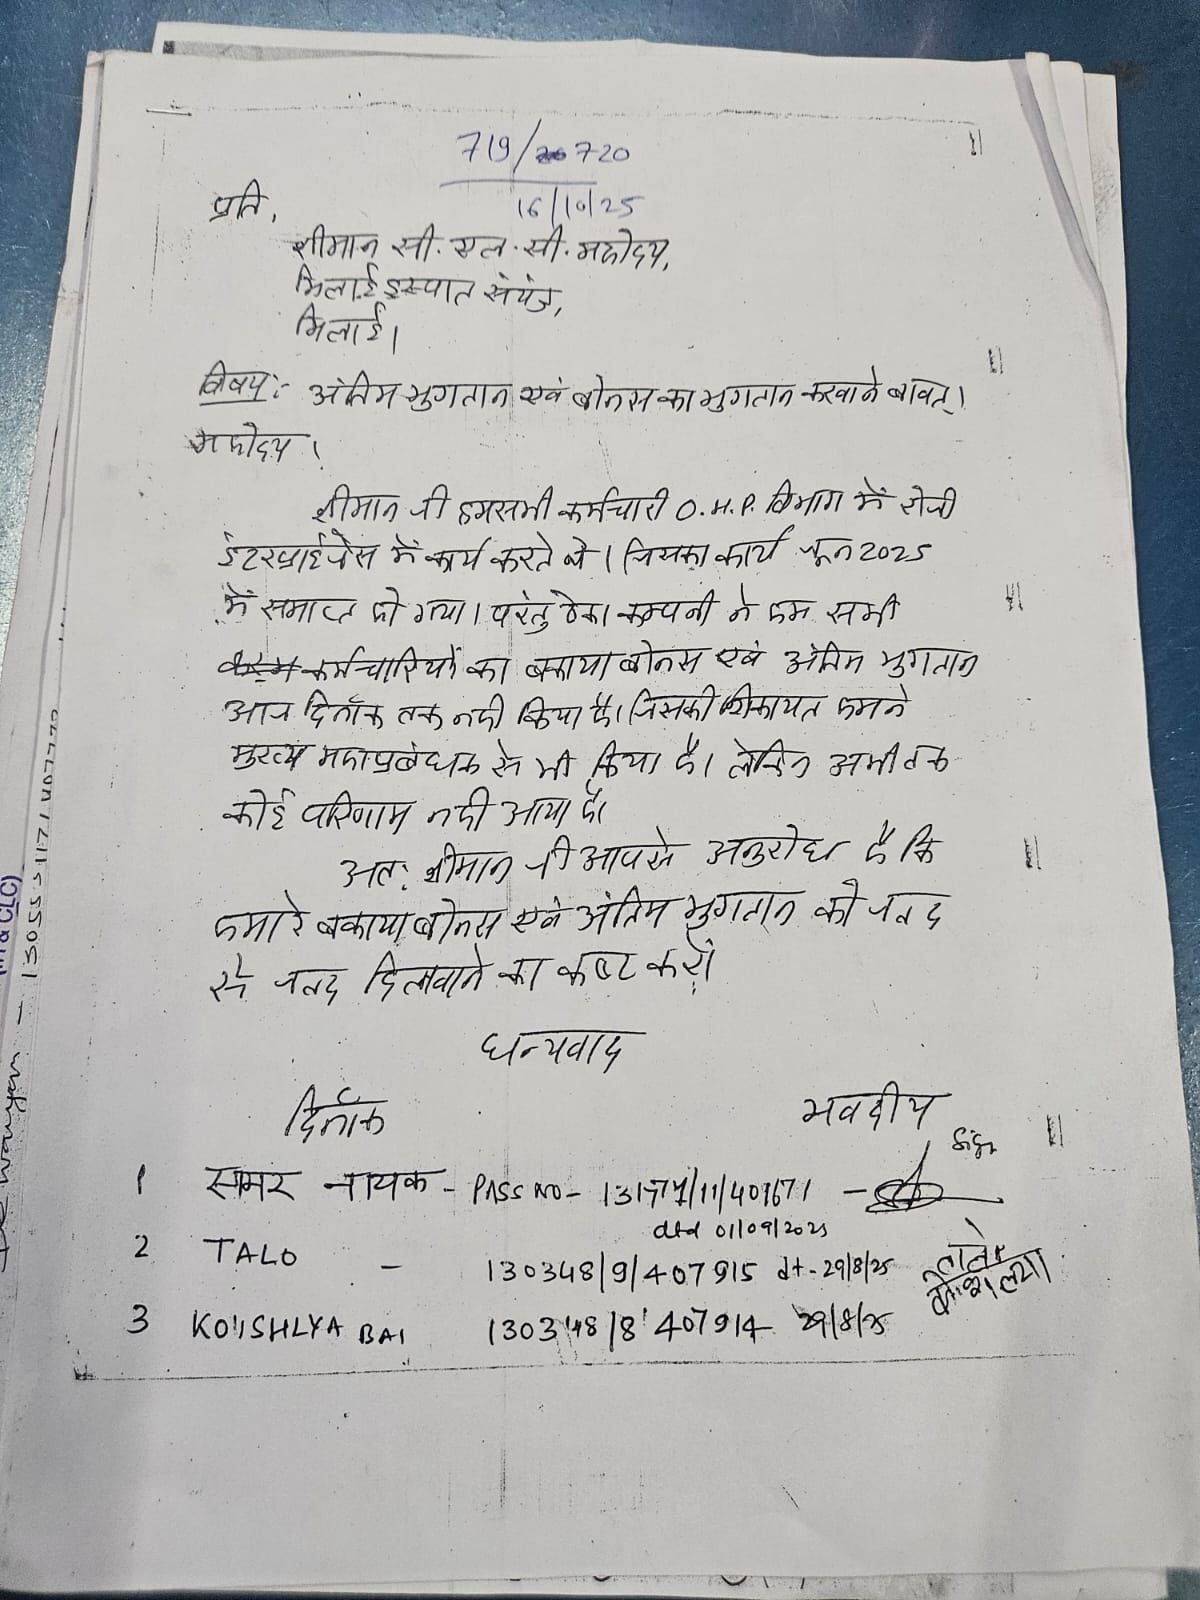 719/720
16/10/25
प्रति,
श्रीमान सी. एल. सी. महोदय,
भिलाई इस्पात संयंत्र,
भिलाई।
विषय:- अंतिम भुगतान एवं बोनस का भुगतान करवाने बावत्।
महोदय।
श्रीमान जी हमसभी कर्मचारी O.H.P. विभाग में रोजी
इंटरप्राईजेस में कार्य करते थे। जिसका कार्य जून 2025
में समाप्त हो गया। परंतु ठेका कम्पनी ने हम सभी
कर्मचारियों का बकाया बोनस एवं अंतिम भुगतान
आज दिनाँक तक नही किया है। जिसकी शिकायत हमने
मुख्य महाप्रबंधक से भी किया है। लेकिन अभी तक
कोई परिणाम नही आया है।
अत: श्रीमान जी आपसे अनुरोध है कि
हमारे बकाया बोनस एवं अंतिम भुगतान को जल्द
से जल्द दिलवाने का कष्ट करें।
धन्यवाद
दिनाँक
भवदीय
1 सामर नायक - PASS NO -
dtd 01/09/2025
2 TALO - 130348/9/407915 dt - 29/8/25
3 KOUSHLYA BAI 130348/8 407914 29/8/25
कौशल्या
& CLC)